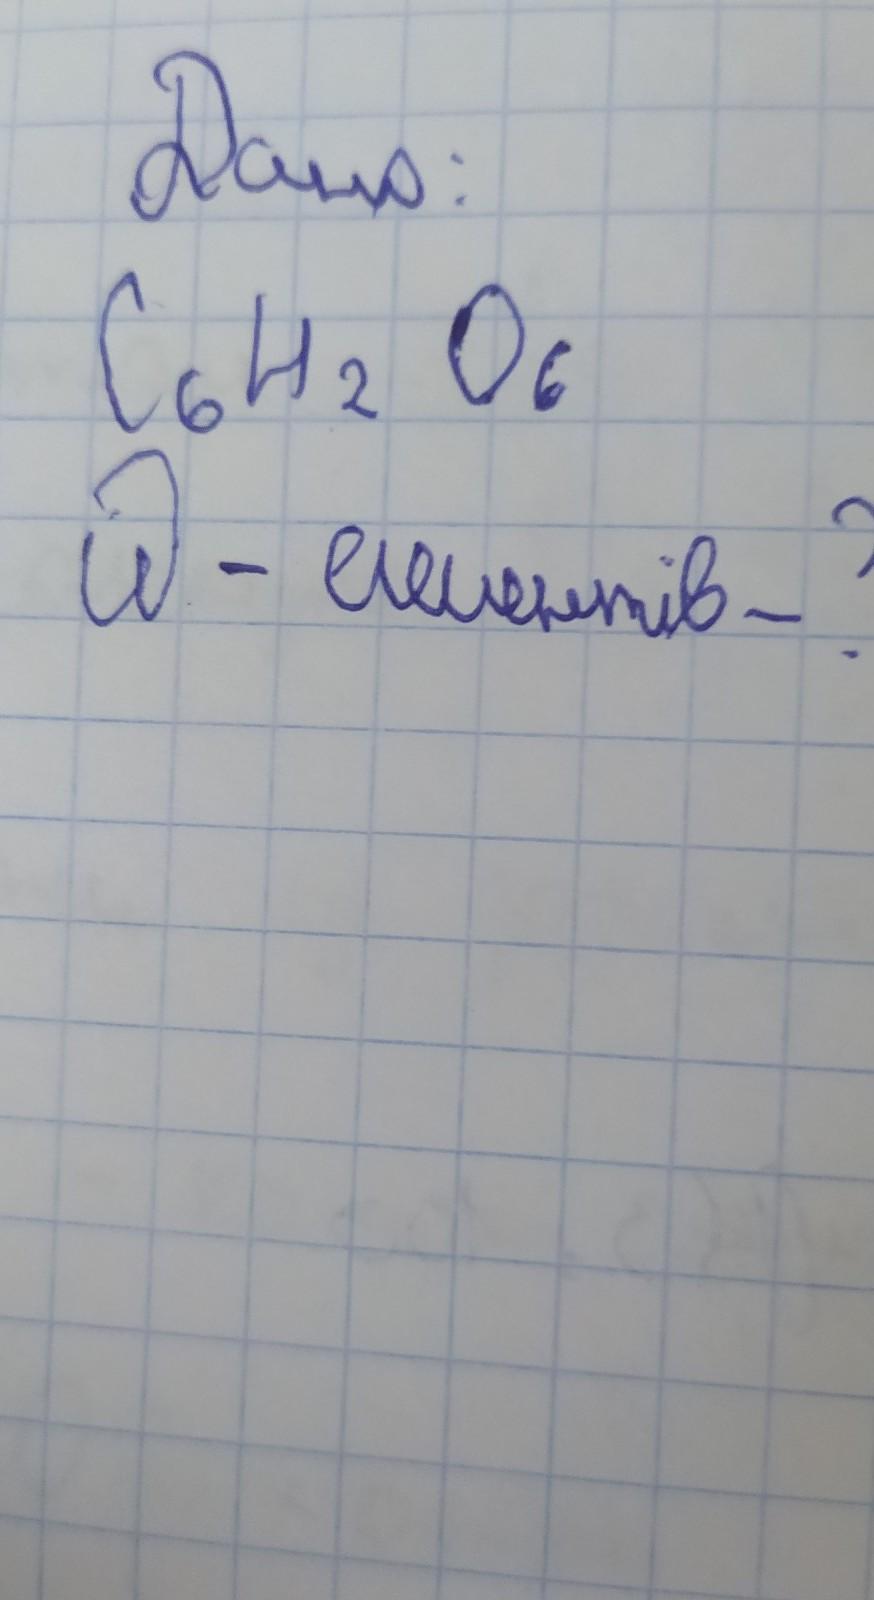 Дано:
C₆H₂O₆
W - елементів - ?